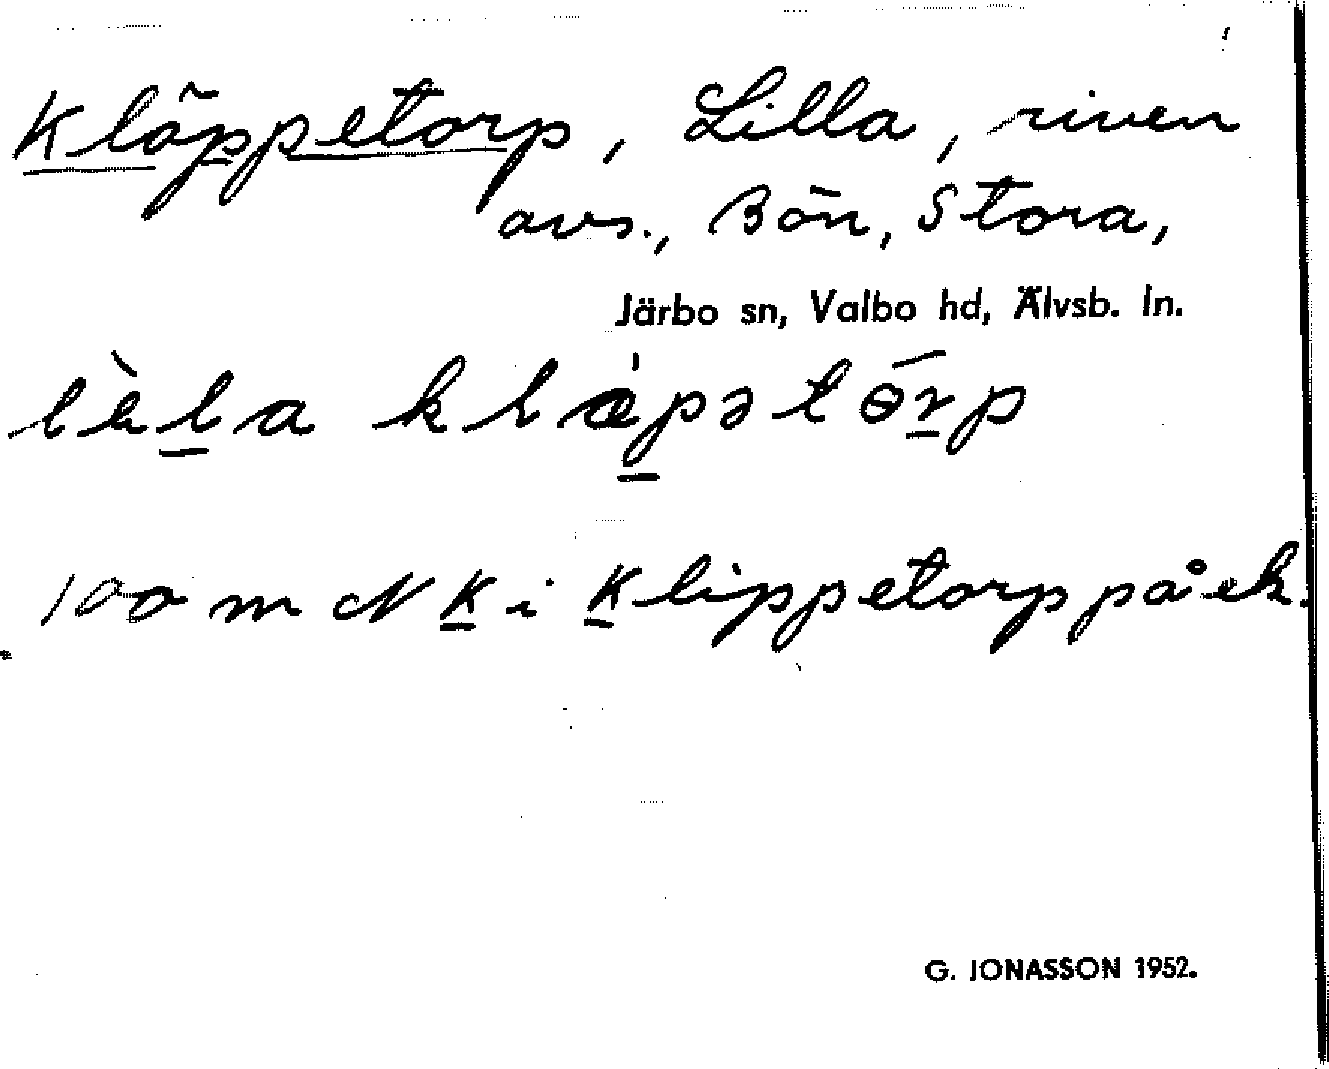 Kläppetorp, Lilla, riven
avs., Bön, Stora,
Järbo sn, Valbo hd, Älvsb. ln.
lèla klæ̀pətɵ́rp
100 m N K i Klippetorp på ek.
G. JONASSON 1952.